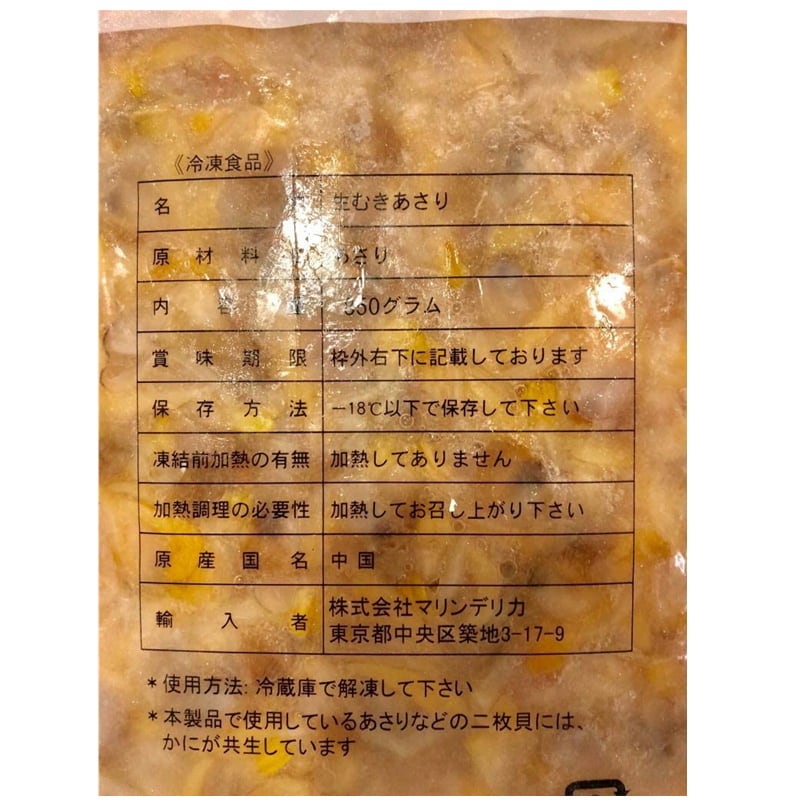 《冷凍食品》
名 生むきあさり
原材料 あさり
内容量 850グラム
賞味期限 枠外右下に記載しております
保存方法 －18℃以下で保存して下さい
凍結前加熱の有無 加熱してありません
加熱調理の必要性 加熱してお召し上がり下さい
原産国名 中国
輸入者 株式会社マリンデリカ
東京都中央区築地3-17-9
＊使用方法: 冷蔵庫で解凍して下さい
＊本製品で使用しているあさりなどの二枚貝には、
かにが共生しています